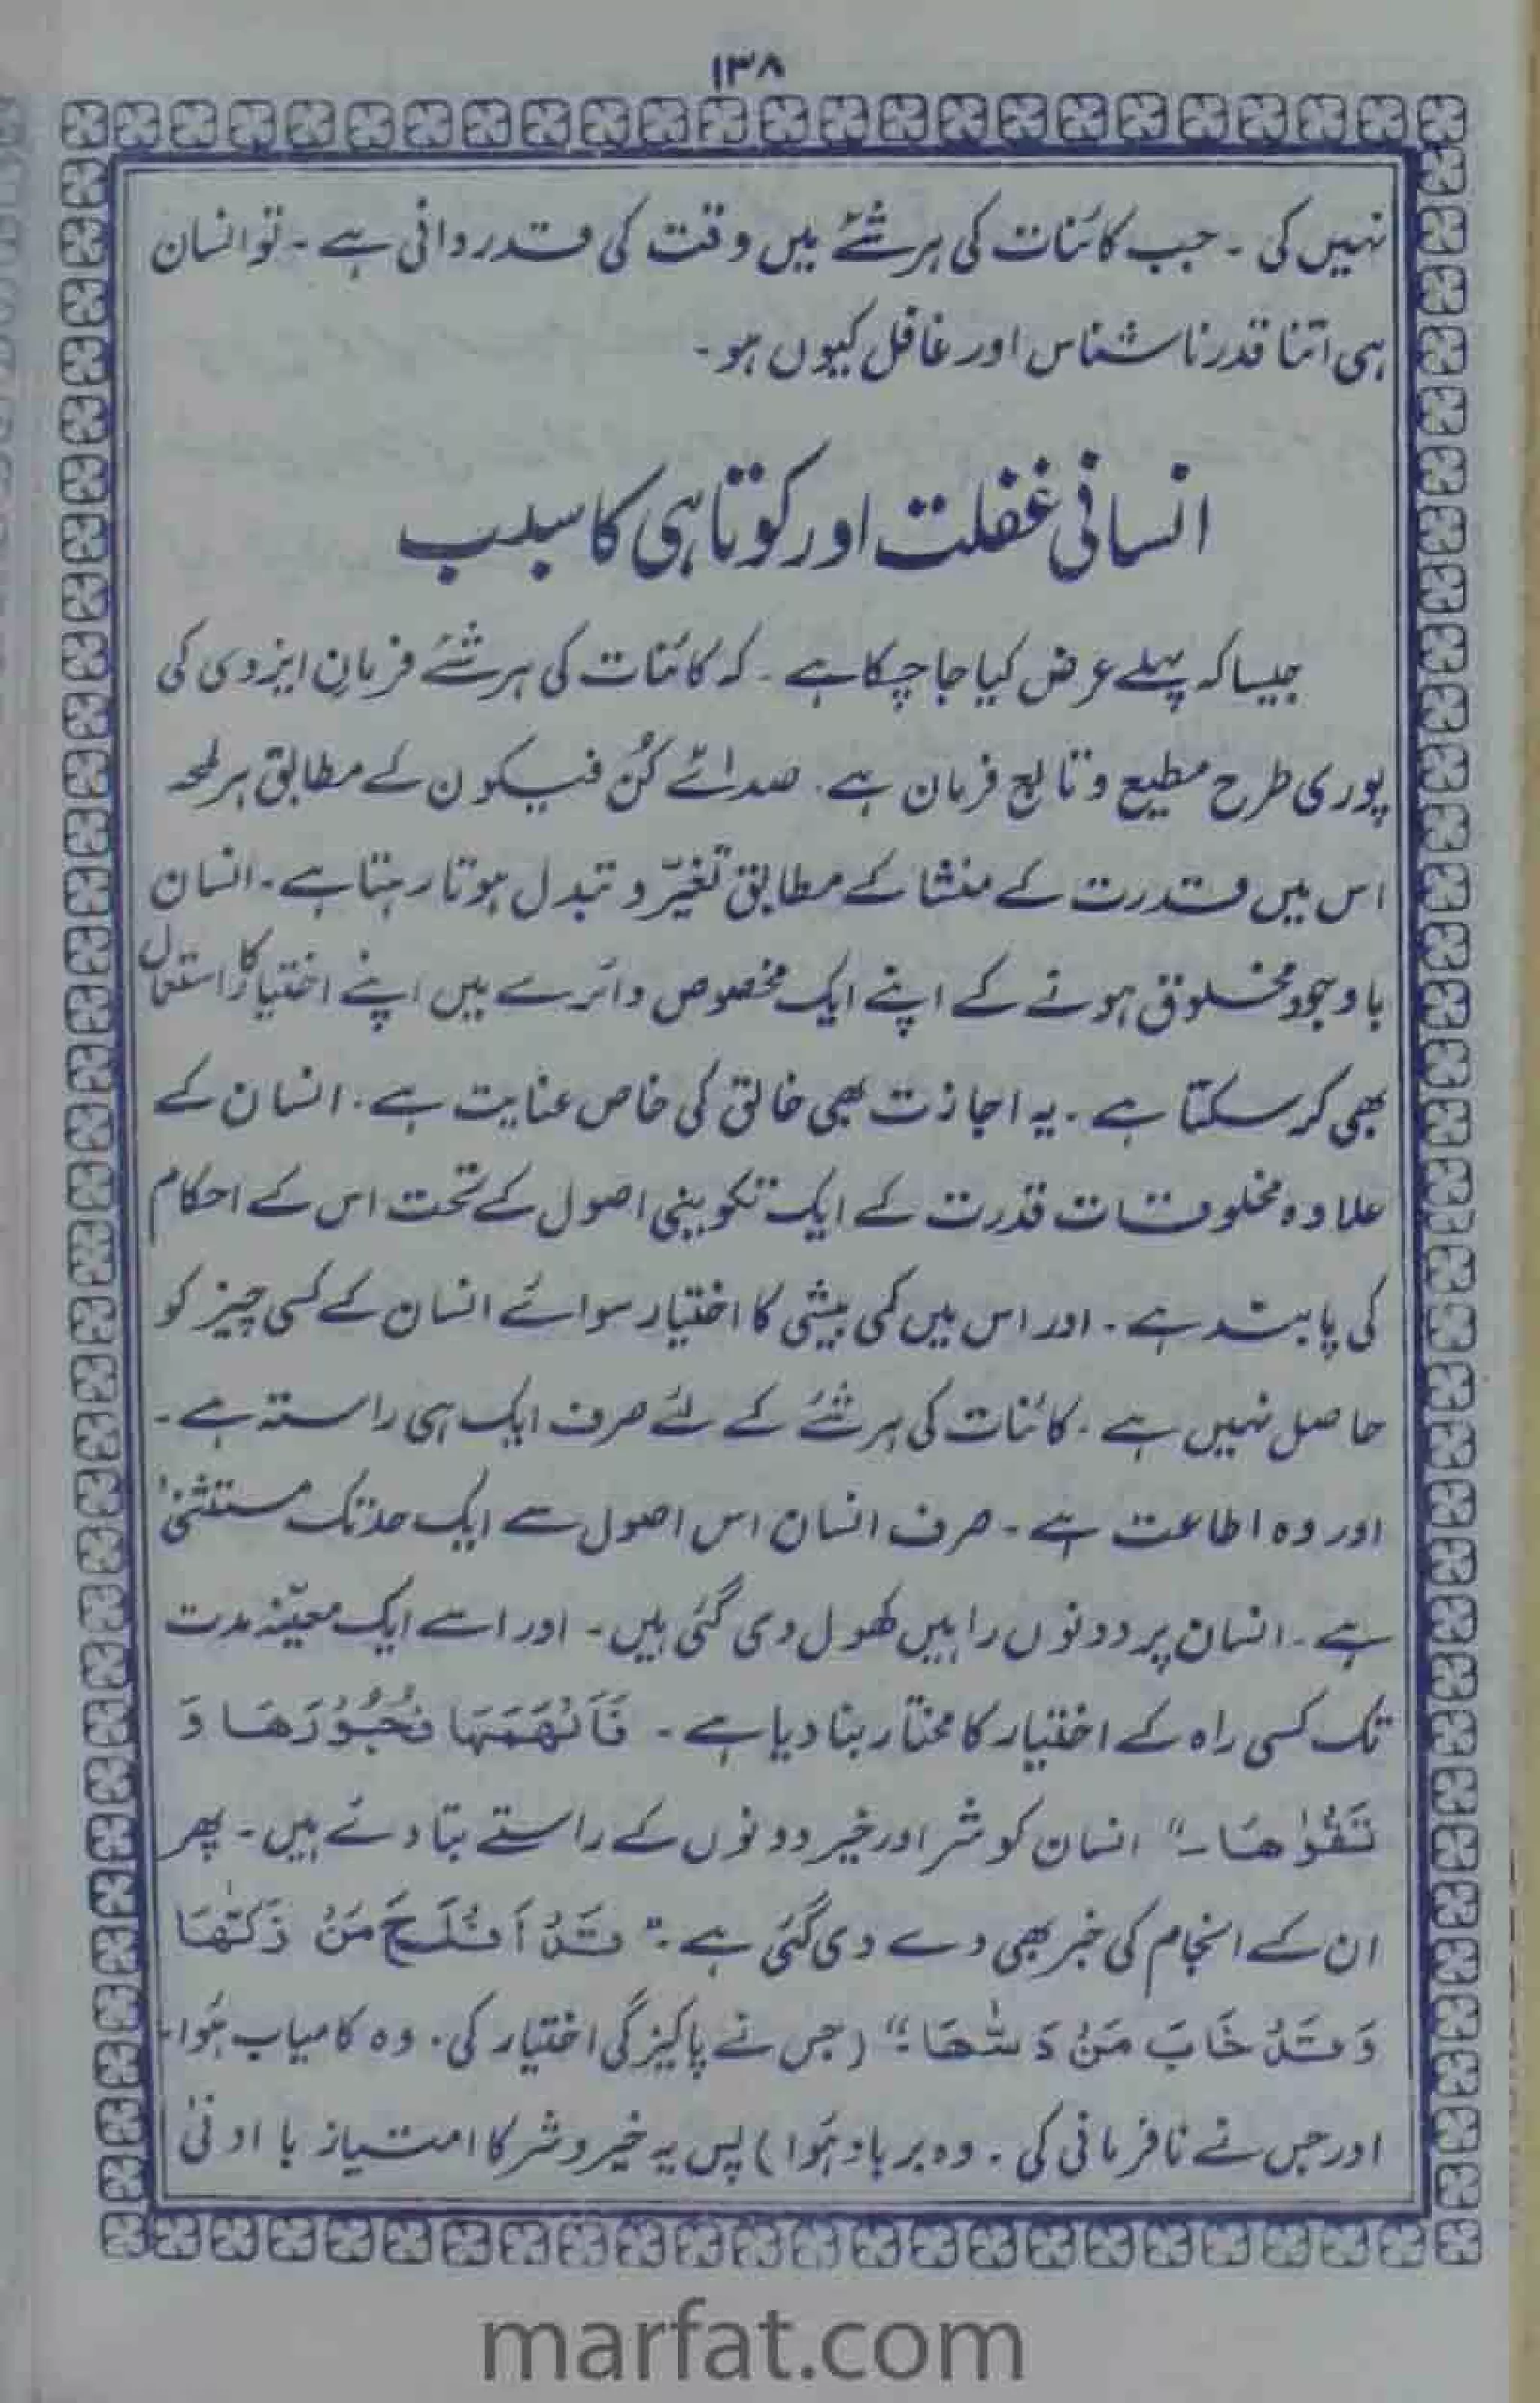 ۱۳۸
نہیں کی ۔ جب کائنات کی ہر شئے میں وقت کی قدردانی ہے ۔ تو انسان
ہی اتنا قدر ناشناس اور غافل کیوں ہو ۔
انسانی غفلت اور کوتاہی کا سبب
جیسا کہ پہلے عرض کیا جا چکا ہے ۔ کہ کائنات کی ہر شئے فرمانِ ایزدی کی
پوری طرح مطیع و تابع فرمان ہے ۔ صدائے کُن فیکون کے مطابق ہر لمحہ
اس میں قدرت کے منشا کے مطابق تغیّر و تبدل ہوتا رہتا ہے ۔ انسان
باوجود مخلوق ہونے کے اپنے ایک مخصوص دائرے میں اپنے اختیار کا استعمال
بھی کر سکتا ہے ۔ یہ اجازت بھی خالق کی خاص عنایت ہے ۔ انسان کے
علاوہ مخلوقات قدرت کے ایک تکوینی اصول کے تحت اس کے احکام
کی پابند ہے ۔ اور اس میں کمی بیشی کا اختیار سوائے انسان کے کسی چیز کو
حاصل نہیں ہے ۔ کائنات کی ہر شئے کے لئے صرف ایک ہی راستہ ہے ۔
اور وہ اطاعت ہے ۔ صرف انسان اس اصول سے ایک حد تک مستثنیٰ
ہے ۔ انسان پر دونوں راہیں کھول دی گئی ہیں ۔ اور اسے ایک معیّنہ مدت
تک کسی راہ کے اختیار کا مختار بنا دیا ہے ۔ فَاَلْهَمَهَا فُجُوْرَهَا وَ
تَقْوٰهَا ۔" انسان کو شر اور خیر دونوں کے راستے بتا دئے ہیں ۔ پھر
ان کے انجام کی خبر بھی دے دی گئی ہے ۔" قَدْ اَفْلَحَ مَنْ زَكّٰهَا
وَقَدْ خَابَ مَنْ دَسّٰهَا ۔" (جس نے پاکیزگی اختیار کی ۔ وہ کامیاب ہُوا ۔
اور جس نے نافرمانی کی ۔ وہ برباد ہُوا) پس یہ خیر و شر کا امتیاز با ادنیٰ
marfat.com